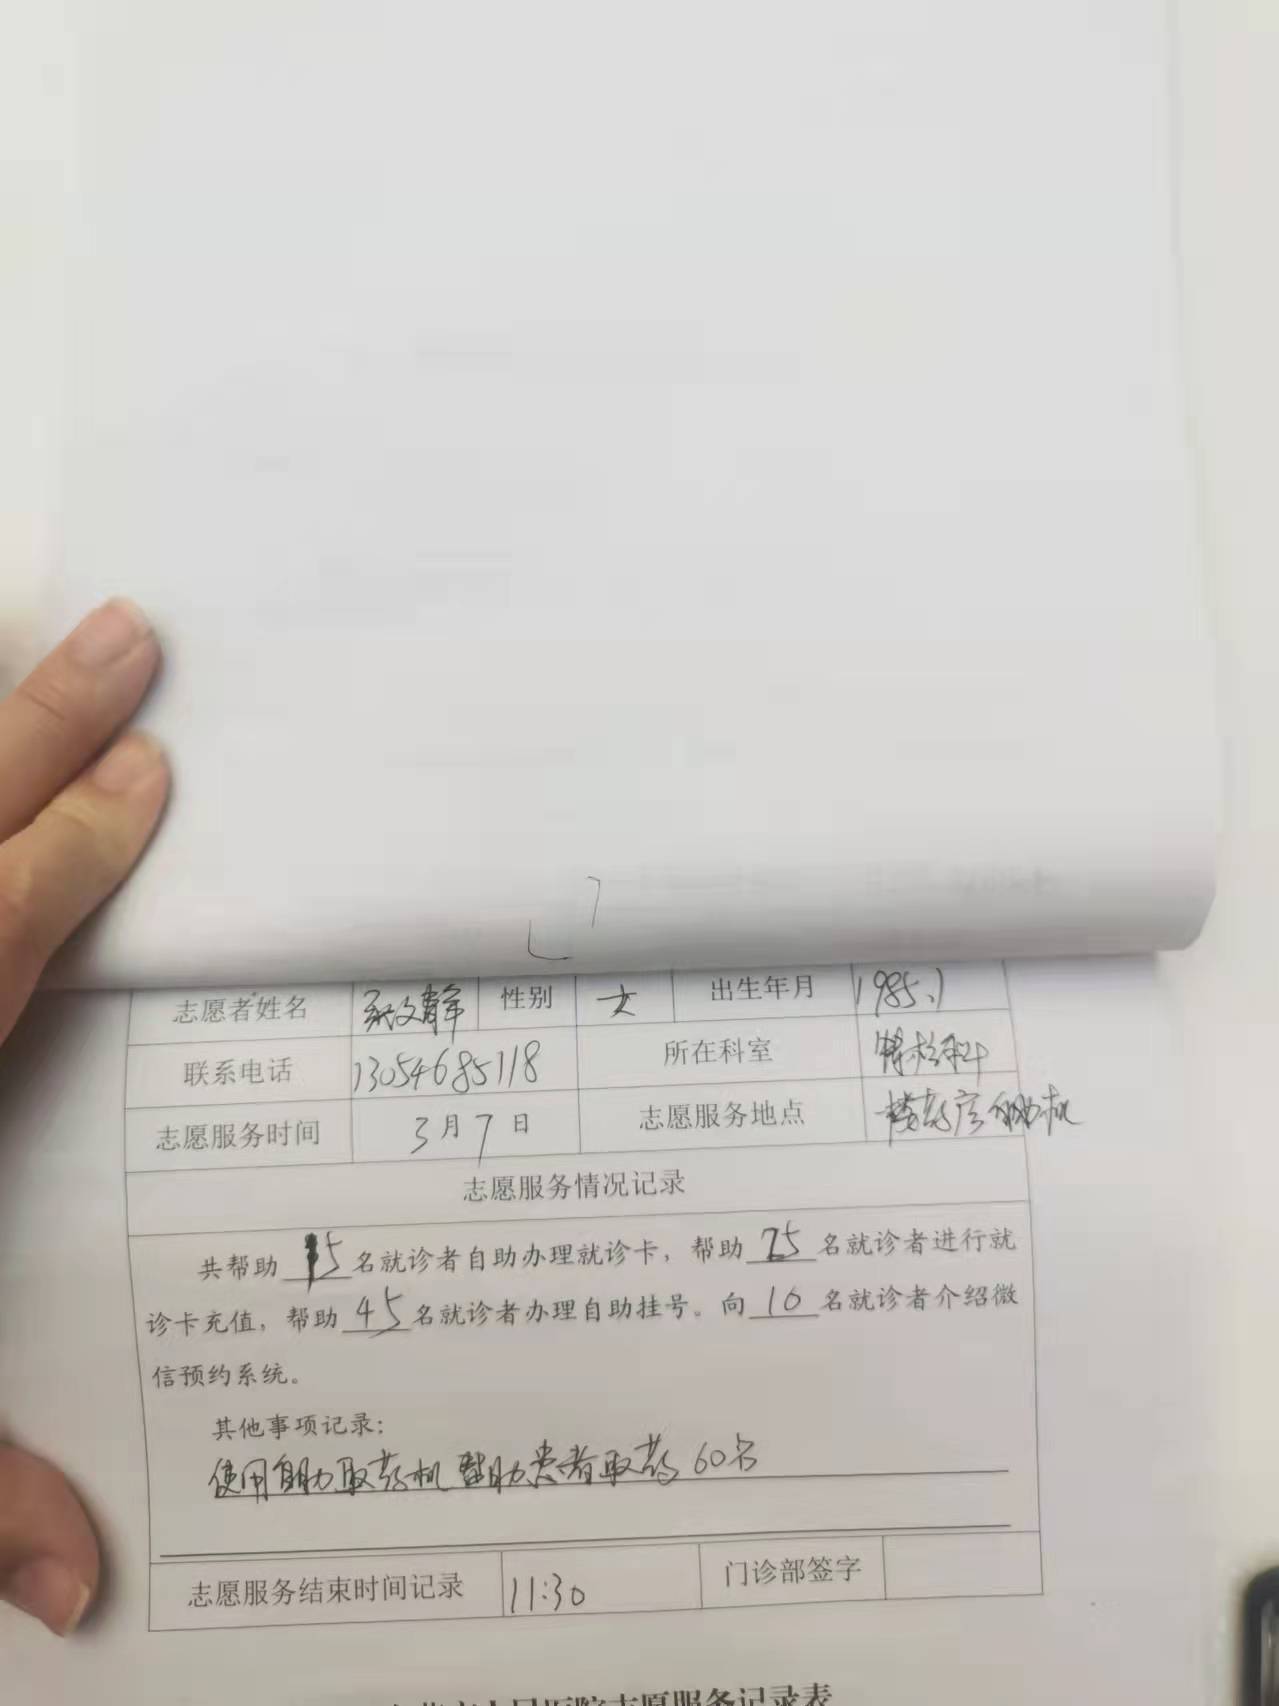 志愿者姓名 文静 性别 女 出生年月 1985.1
联系电话 13054685118 所在科室
志愿服务时间 3月7日 志愿服务地点 一楼药房自助机
志愿服务情况记录
共帮助 15 名就诊者自助办理就诊卡，帮助 25 名就诊者进行就
诊卡充值，帮助 45 名就诊者办理自助挂号。向 10 名就诊者介绍微
信预约系统。
其他事项记录:
使用自助取药机帮助患者取药60名
志愿服务结束时间记录 11:30 门诊部签字
人民医院志愿服务记录表